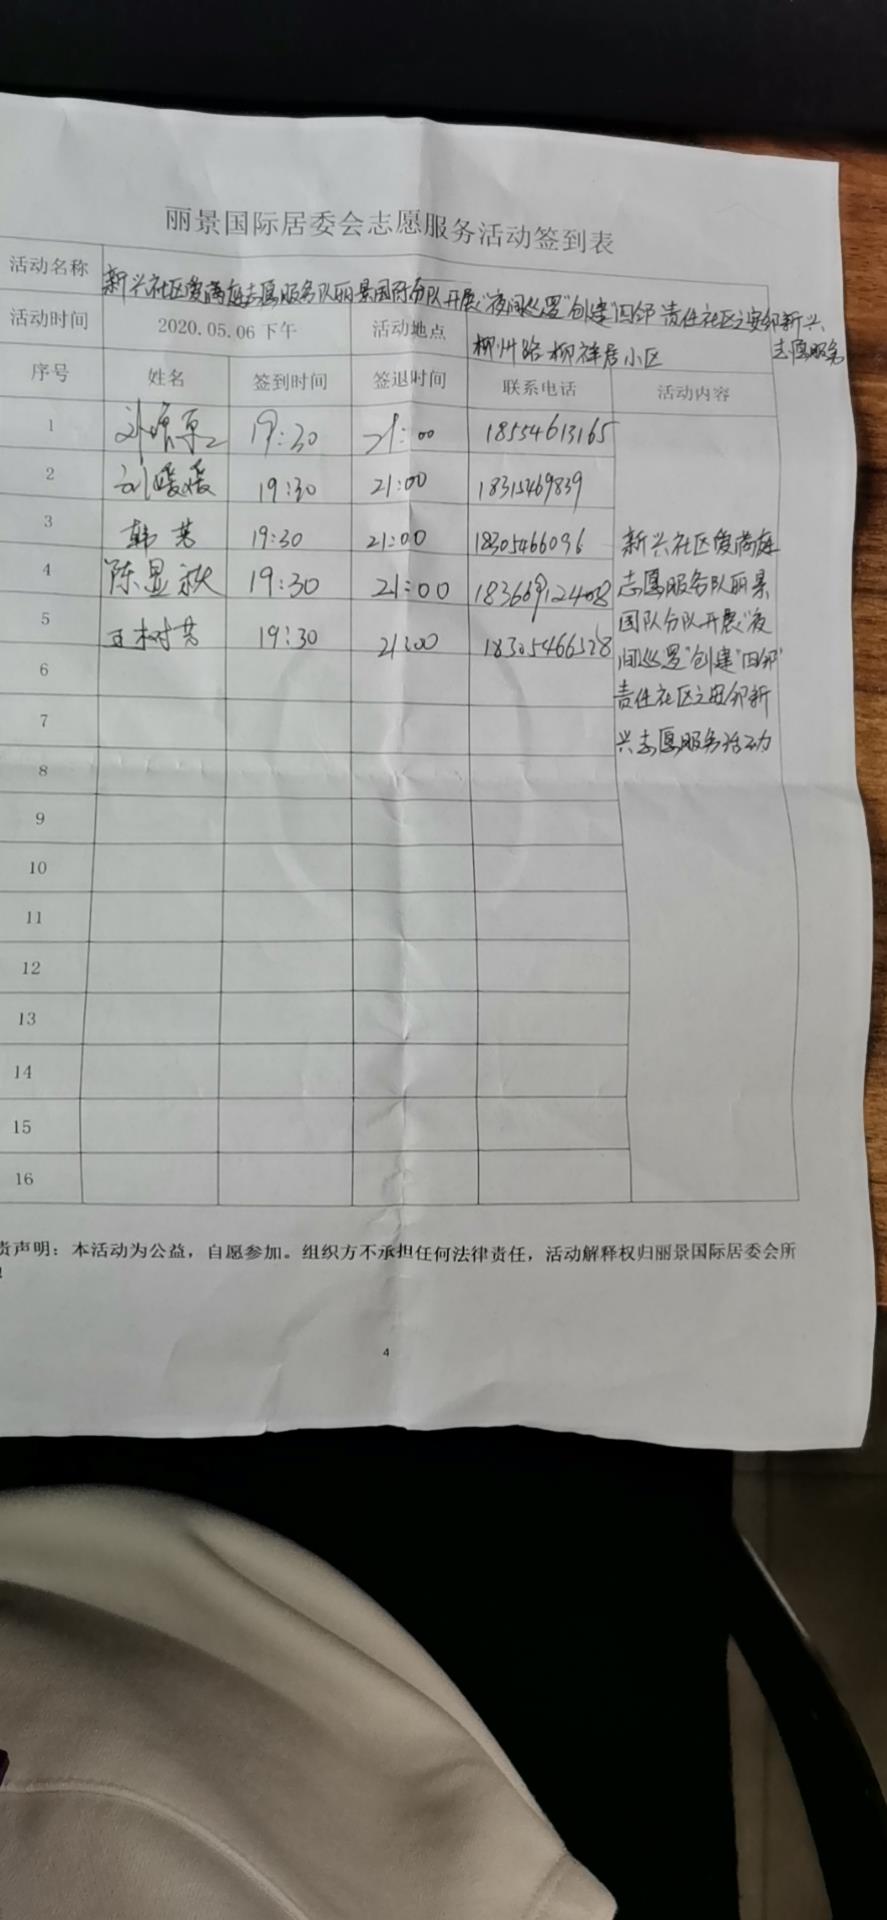 丽景国际居委会志愿服务活动签到表
活动名称 新兴社区爱满庭志愿服务队丽景国际分队开展"夜间巡逻"创建"四邻"责任社区之安邻新兴
志愿服务
活动时间 2020.05.06下午 活动地点 柳州路柳祥居小区
序号 姓名 签到时间 签退时间 联系电话 活动内容
1 19:30 21:00 18554613165
2 刘媛媛 19:30 21:00 18315469839
3 韩芳 19:30 21:00 18305466096
4 陈显秋 19:30 21:00
5 王树芳 19:30 21:00 18305466528
新兴社区爱满庭
志愿服务队丽景
国队分队开展"夜
间巡逻"创建"四邻"
责任社区之安邻新
兴志愿服务活动
6
7
8
9
10
11
12
13
14
15
16
责声明：本活动为公益，自愿参加。组织方不承担任何法律责任，活动解释权归丽景国际居委会所
4